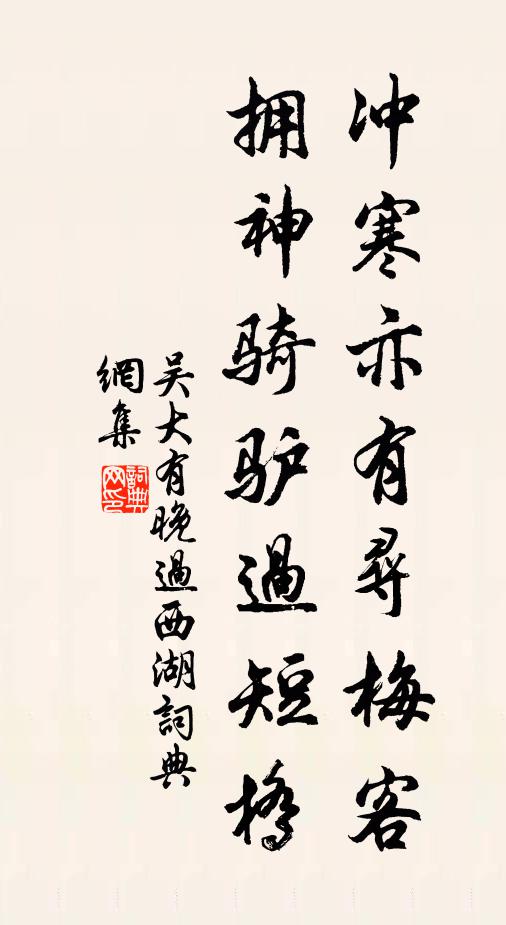 冲寒亦有尋梅客
拥神骑驴過短橋
吴大有晚過西湖詞典
網集
詞典
网印